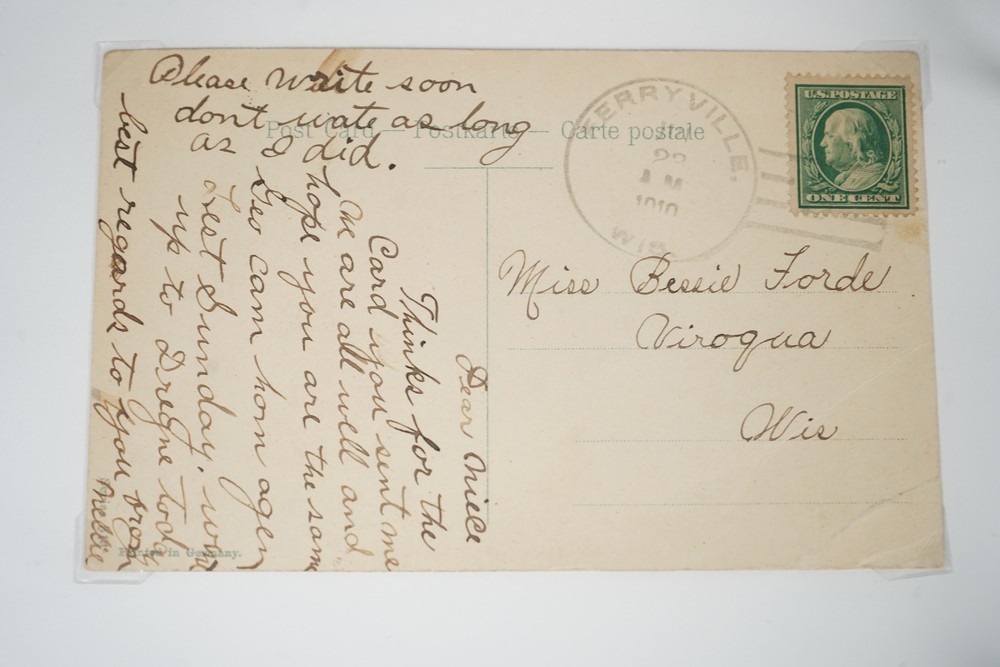 Please write soon
dont wate as long
as I did.
Post Card — Postkarte — Carte postale
Dear Niece
Thinks for the
Card you sent me
We are all well and
hope you are the same
Geo cam hom agen
Lest Sunday.
up to Dregne today
best regards to you from
Nellie
Printed in Germany.
FERRYVILLE,
22
A M
1910
WIS
U.S. POSTAGE
ONE CENT
Miss Bessie Forde
Viroqua
Wis